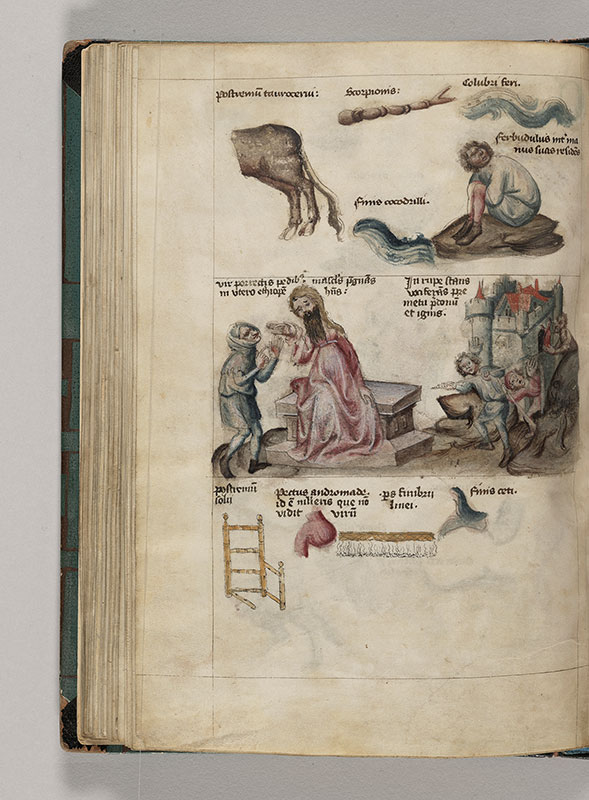 Postremū taurocerui:
Scorpionis:
Colubri feri.
ferbudulus int̄ ma
nus suas residēs
finis cocodrilli.
vir porrectis pedibꝫ
in utero ethiopē
masclus p̄gnās
hñs:
In rupe stans
vociferās pre
metu p̄donū
et ignis.
postremū
solii
Pectus andromade.
id ē mlieris que nō
vidit virū
ps fimbrii
linei.
finis ceti.